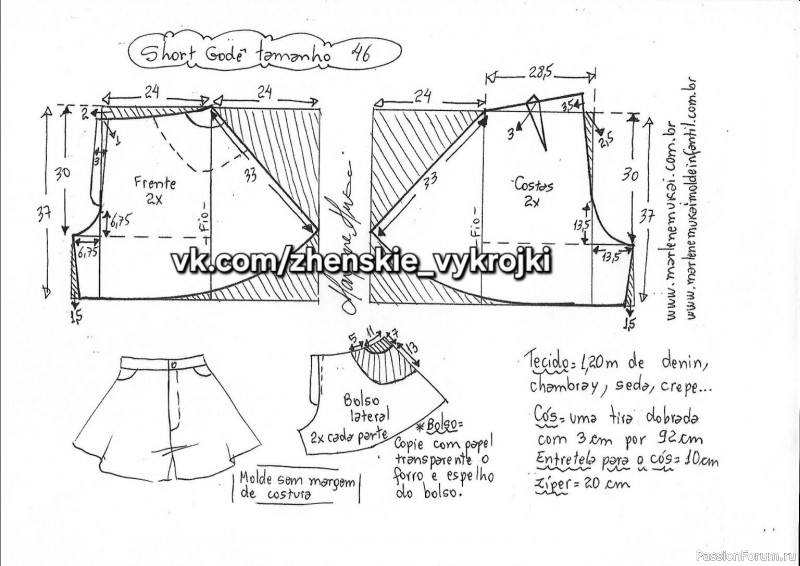 Short Godê tamanho 46
24
24
2
1
3
30
37
33
Frente
2x
Fio
6,75
6,75
1,5
24
28,5
3,5
3
2,5
33
Costas
2x
Fio
30
37
13,5
13,5
1,5
vk.com/zhenskie_vykrojki
www.marlenemukai.com.br
www.marlenemukaimoldeinfantil.com.br
5
11
7
13
Bolso
lateral
2x cada parte
*Bolso=
Copie com papel
transparente o
forro e espelho
do bolso.
Molde sem margem
de costura
Tecido= 1,20m de denin,
chambray, seda, crepe...
Cós= uma tira dobrada
com 3cm por 92cm
Entretela para o cós=10cm
zíper= 20 cm
PassionForum.ru